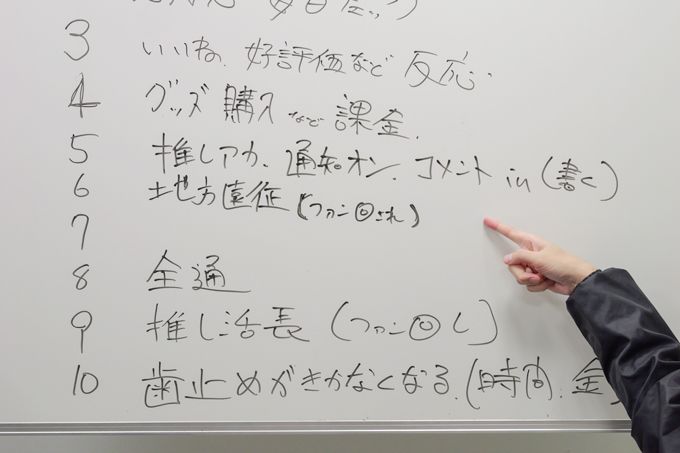 3 いいね、好評価など反応
4 グッズ購入など課金.
5 推しアカ、通知オン、コメントin(書く)
6 地方遠征(ファン◎され)
7
8 全通
9 推し活長(ファン◎し)
10 歯止めがきかなくなる.(時間、金)